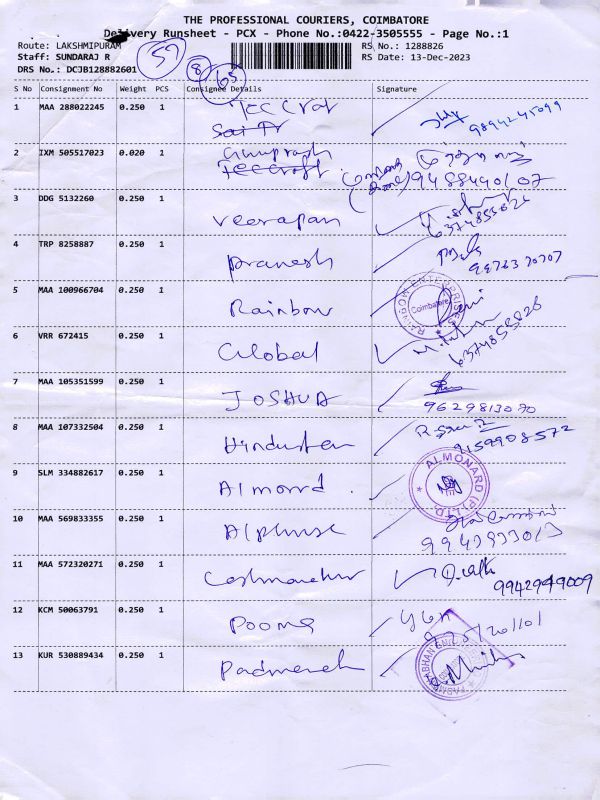 THE PROFESSIONAL COURIERS, COIMBATORE
Delivery Runsheet - PCX - Phone No.:0422-3505555 - Page No.:1
Route: LAKSHMIPURAM
RS No.: 1288826
Staff: SUNDARAJ R
RS Date: 13-Dec-2023
DRS No.: DCJB128882601
57
8
65
S No Consignment No Weight PCS Consignee Details Signature
1 MAA 288022245 0.250 1 Teccraf
Sai
9894245099
2 IXM 505517023 0.020 1
Teccraft
9488490107
3 DDG 5132260 0.250 1 Veerapan
6374855826
4 TRP 8258887 0.250 1 Pranesh
5 MAA 100966704 0.250 1 Rainbow
RAINBOW ENTERPRISES
Coimbatore
6 VRR 672415 0.250 1 Global
6374855826
7 MAA 105351599 0.250 1 JOSHUA
9629813070
8 MAA 107332504 0.250 1 Hindustan
9159908572
9 SLM 334882617 0.250 1 Almond
ALMONARD (P) LTD.
10 MAA 569833355 0.250 1 Alphnse
9943933013
11 MAA 572320271 0.250 1
9942949009
12 KCM 50063791 0.250 1 Pooma
13 KUR 530889434 0.250 1 Padmanah